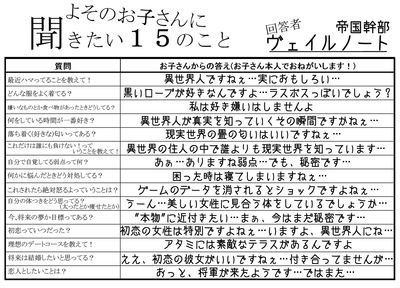 よそのお子さんに
聞きたい１５のこと
回答者
帝国幹部
ヴェイルノート
質問
お子さんからの答え(お子さん本人でおねがいします！)
最近ハマってることを教えて！
異世界人ですねぇ…実におもしろい…
どんな服をよく着てる？
黒いローブが好きなんですよ…ラスボスっぽいでしょう？
嫌いなものとか食べ物があったときどうしてる？
私は好き嫌いはしませんよ
何をしている時間が一番好き？
異世界人が真実を知っていくその瞬間ですかねぇ…
落ち着く(好きな)匂いってある？
現実世界の畳の匂いはいいですねぇ…
これだけは誰にも負けない！って
いうことを教えて！
異世界の住人の中で誰よりも現実世界を知っています…
自分で自覚してる弱点って何？
あぁ…ありますね弱点…でも、秘密です…
何かに悩んだときどう対処してる？
困った時は寝てしまいますねぇ…
これされたら絶対怒るよっていうことは？
ゲームのデータを消されるとショックですよねぇ…
自分の体つきをどう思ってる？
(太ったとか痩せたとか)
うーん…美しい女性に見合う体をしているでしょうか…
今、将来の夢か目標ってある？
"本物"に近付きたい…まぁ、今はまだ秘密です…
初恋っていつだった？
初恋の女性は特別ですよねぇ…いますよ、異世界人にね…
理想のデートコースを教えて！
アタミには素敵なテラスがあるんですよ
将来は結婚したいと思ってる？
ええ、初恋の彼女がいいですねぇ…付き合ってませんが…
恋人としたいことは？
おっと、将軍が来たようです…ではまた…